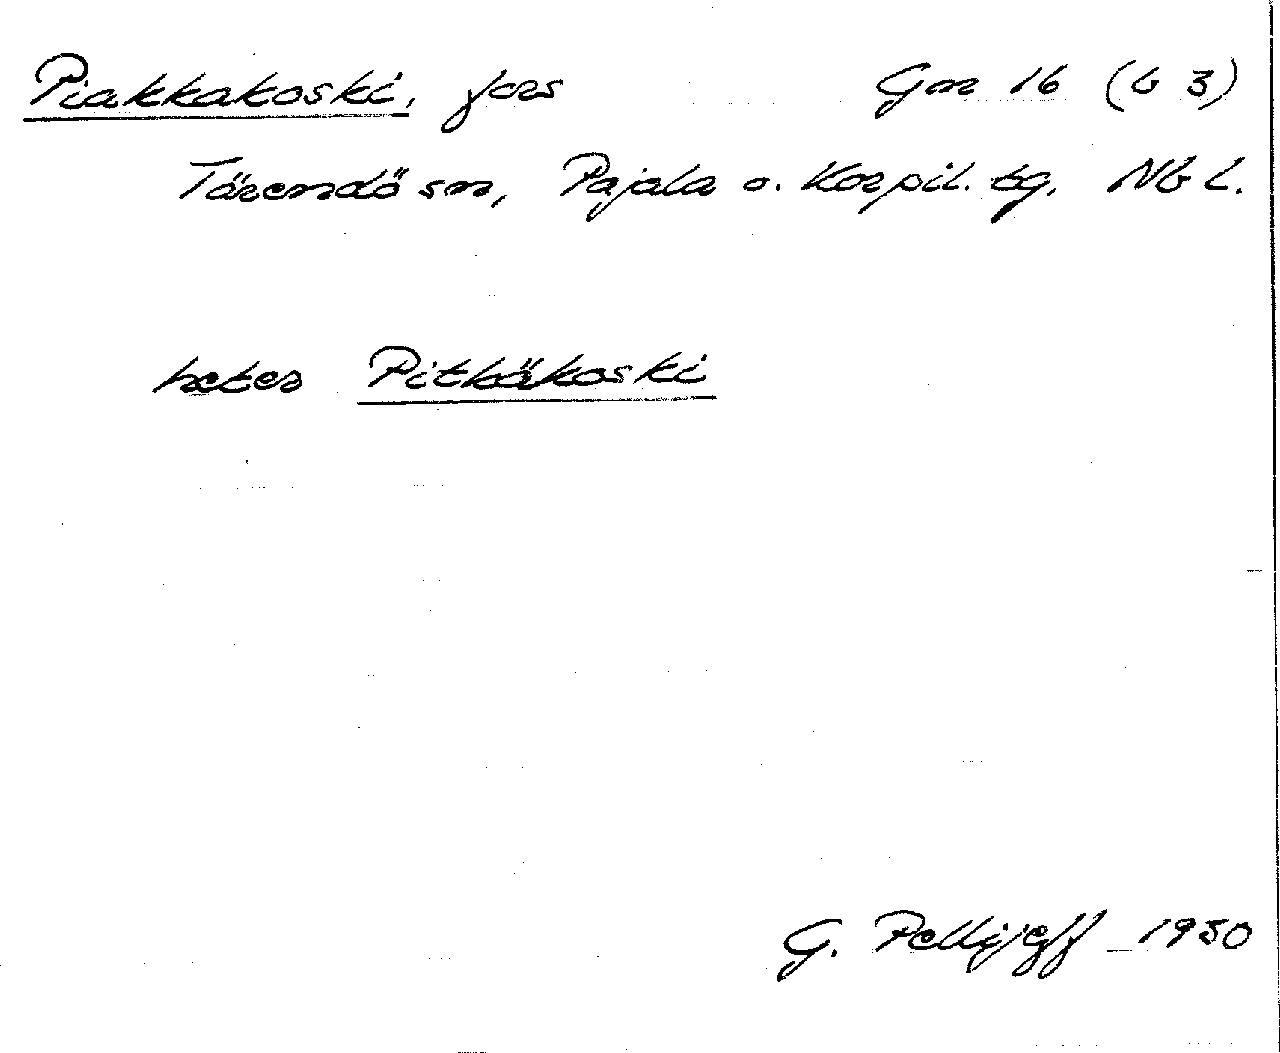 Piakkakoski, fors Gm 16 (b 3)
Tärendö sn, Pajala o. Korpil. tg. Nb l.
heter Pitkäkoski
G. Pellijeff 1950